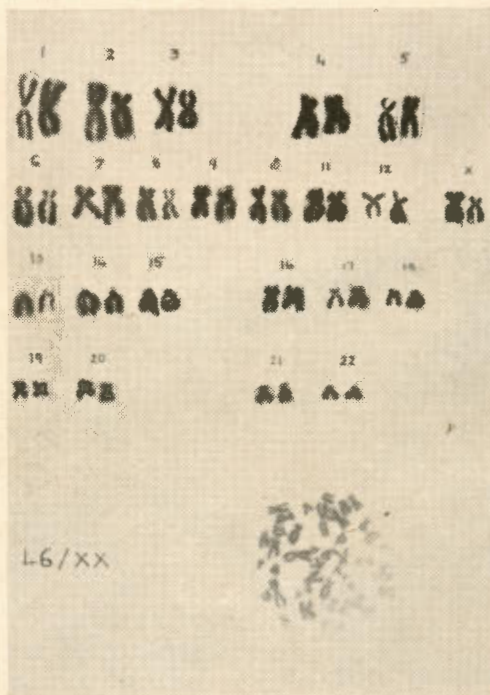 1 2 3 4 5
6 7 8 9 10 11 12 X
13 14 15 16 17 18
19 20 21 22
46/XX